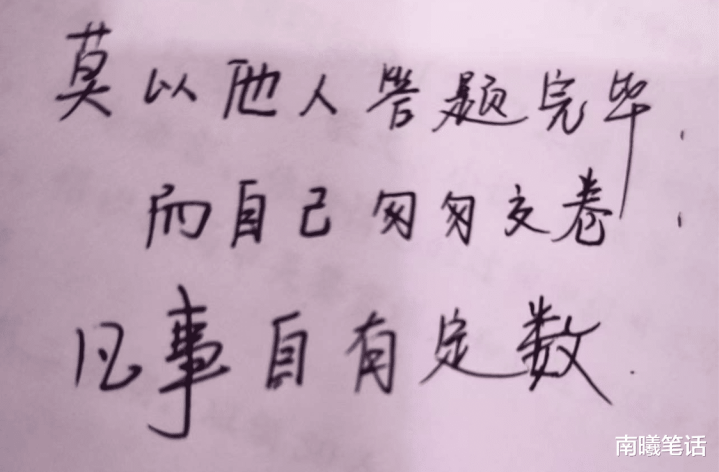 莫以他人答题完毕.
而自己匆匆交卷.
凡事自有定数.
南曦笔话